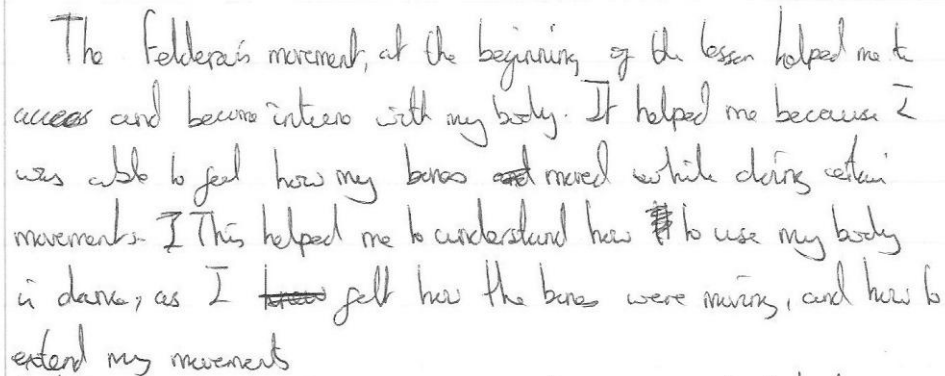 The Felderais movement, at the beginning of the lesson helped me to
access and become intune with my body. It helped me because I
was able to feel how my bones moved while doing certain
movements. I This helped me to understand how to use my body
in dance, as I felt how the bones were moving, and how to
extend my movements